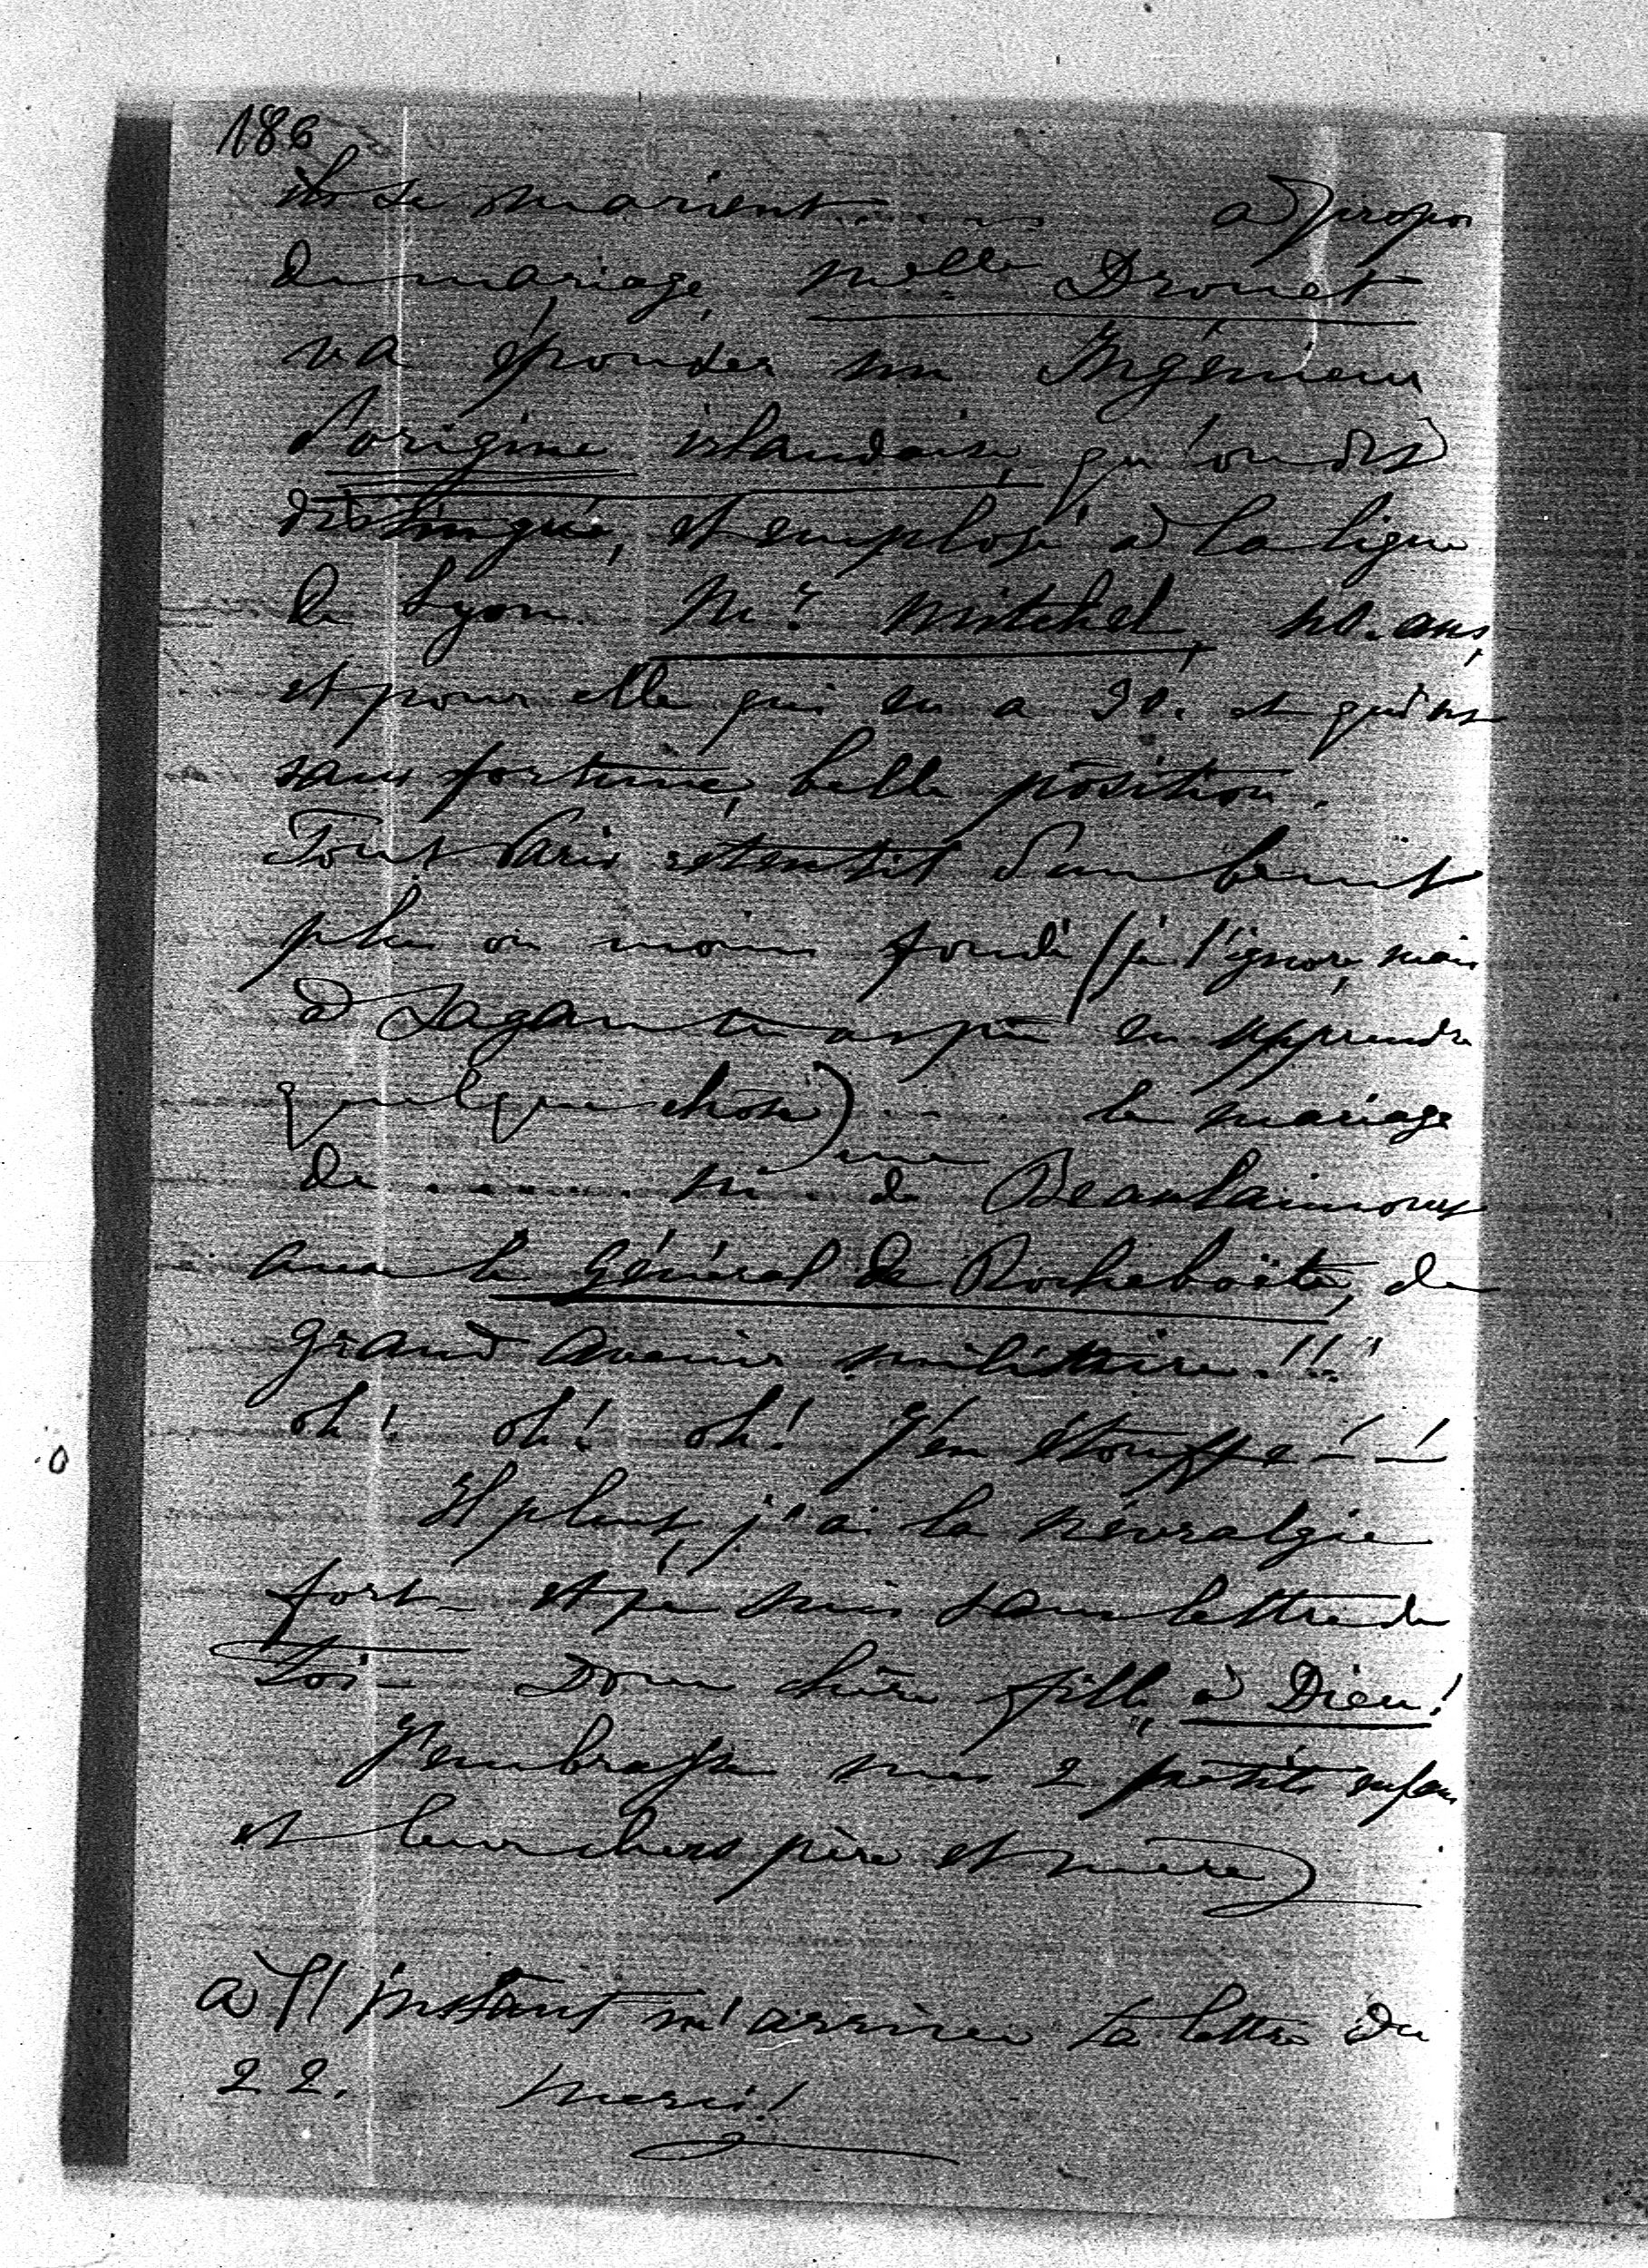 186
ils se marient...... à propos
de mariage, Melle Drouet
va épouser un Ingénieur
d'origine irlandaise, qu'on dit
distingué, et employé à la ligne
de Lyon. Mr Mitchel, 40. ans,
et pour elle qui en a 30. et qui est
sans fortune, belle position.
Tout Paris retentit d'un bruit
plus ou moins fondé (je l'ignore, mais
à Sagan tu as pu en apprendre
quelque chose) .... le mariage
de ...... Mme de Beaulaincourt
avec le Général de Rochebouët, de
grand avenir militaire!!!
oh! oh! oh! J'en étouffe!!
Il pleut, j'ai la névralgie
fort_ et je suis sans lettre de
toi_ Donc chère fille, à Dieu!
J'embrasse mes 2 petits enfans
et leur chers père et mère
à l'instant m'arrive ta lettre du
22. Merci!